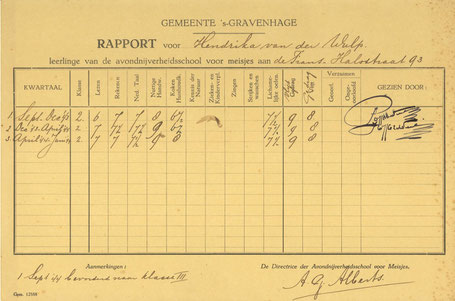 GEMEENTE 's-GRAVENHAGE
RAPPORT voor Hendrika van der Wulp.
leerlinge van de avondnijverheidsschool voor meisjes aan de Frans Halsstraat 93
KWARTAAL Klasse Lezen Rekenen Ned. Taal Nuttige Handw. Koken Huishoudk. Kennis der Natuur Zieken- en Kinderverpl. Zingen Strijken en wasschen Lichamelijke oefen. Vlijt Gedrag Verzuimen Geoorl. Ongeoorloofd GEZIEN DOOR:
1 Sept. Dec 43 2 6 7 7 8 6½ 7½ 9 8
2 Dec 43 April 44 2 7 7½ 7½ 9 6½ 7½ 9 8
3 April 44 Jan 2 7 7 7½ 9 8 7½ 9 8
Aanmerkingen:
1 Sept 44 bevorderd naar klasse III
De Directrice der Avondnijverheidsschool voor Meisjes,
A G Alberts.
Gem. 12588